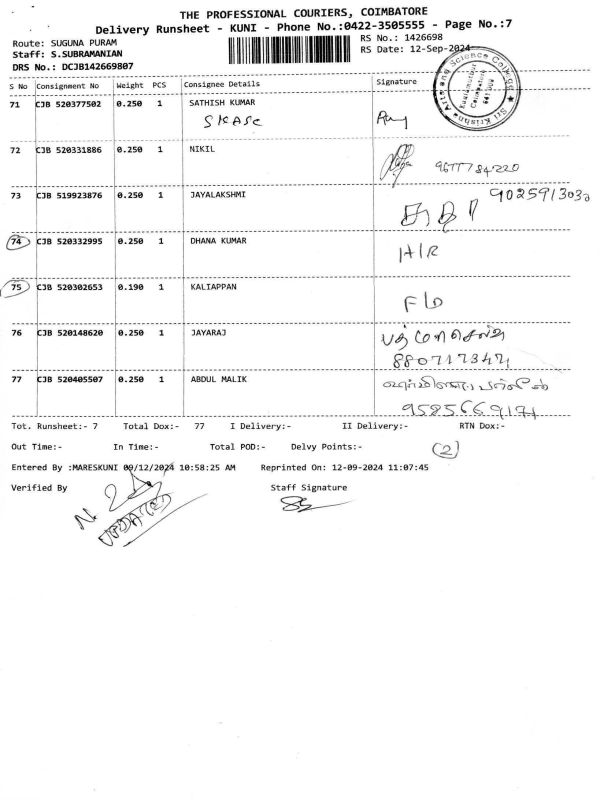 THE PROFESSIONAL COURIERS, COIMBATORE
Delivery Runsheet - KUNI - Phone No.:0422-3505555 - Page No.:7
Route: SUGUNA PURAM
RS No.: 1426698
Staff: S.SUBRAMANIAN
RS Date: 12-Sep-2024
DRS No.: DCJB142669807
Sri Krishna Arts and Science College
Kuniamuthur
Coimbatore
641 008
S No Consignment No Weight PCS Consignee Details Signature
71 CJB 520377502 0.250 1 SATHISH KUMAR
SKASC
72 CJB 520331886 0.250 1 NIKIL
9677784220
73 CJB 519923876 0.250 1 JAYALAKSHMI 9025913030
74 CJB 520332995 0.250 1 DHANA KUMAR H/R
75 CJB 520302653 0.190 1 KALIAPPAN F/D
76 CJB 520148620 0.250 1 JAYARAJ
8807173471
77 CJB 520405507 0.250 1 ABDUL MALIK
9585669171
Tot. Runsheet:- 7 Total Dox:- 77 I Delivery:- II Delivery:- RTN Dox:-
Out Time:- In Time:- Total POD:- Delvy Points:- 2
Entered By :MARESKUNI 09/12/2024 10:58:25 AM Reprinted On: 12-09-2024 11:07:45
Verified By Staff Signature
UPDATED